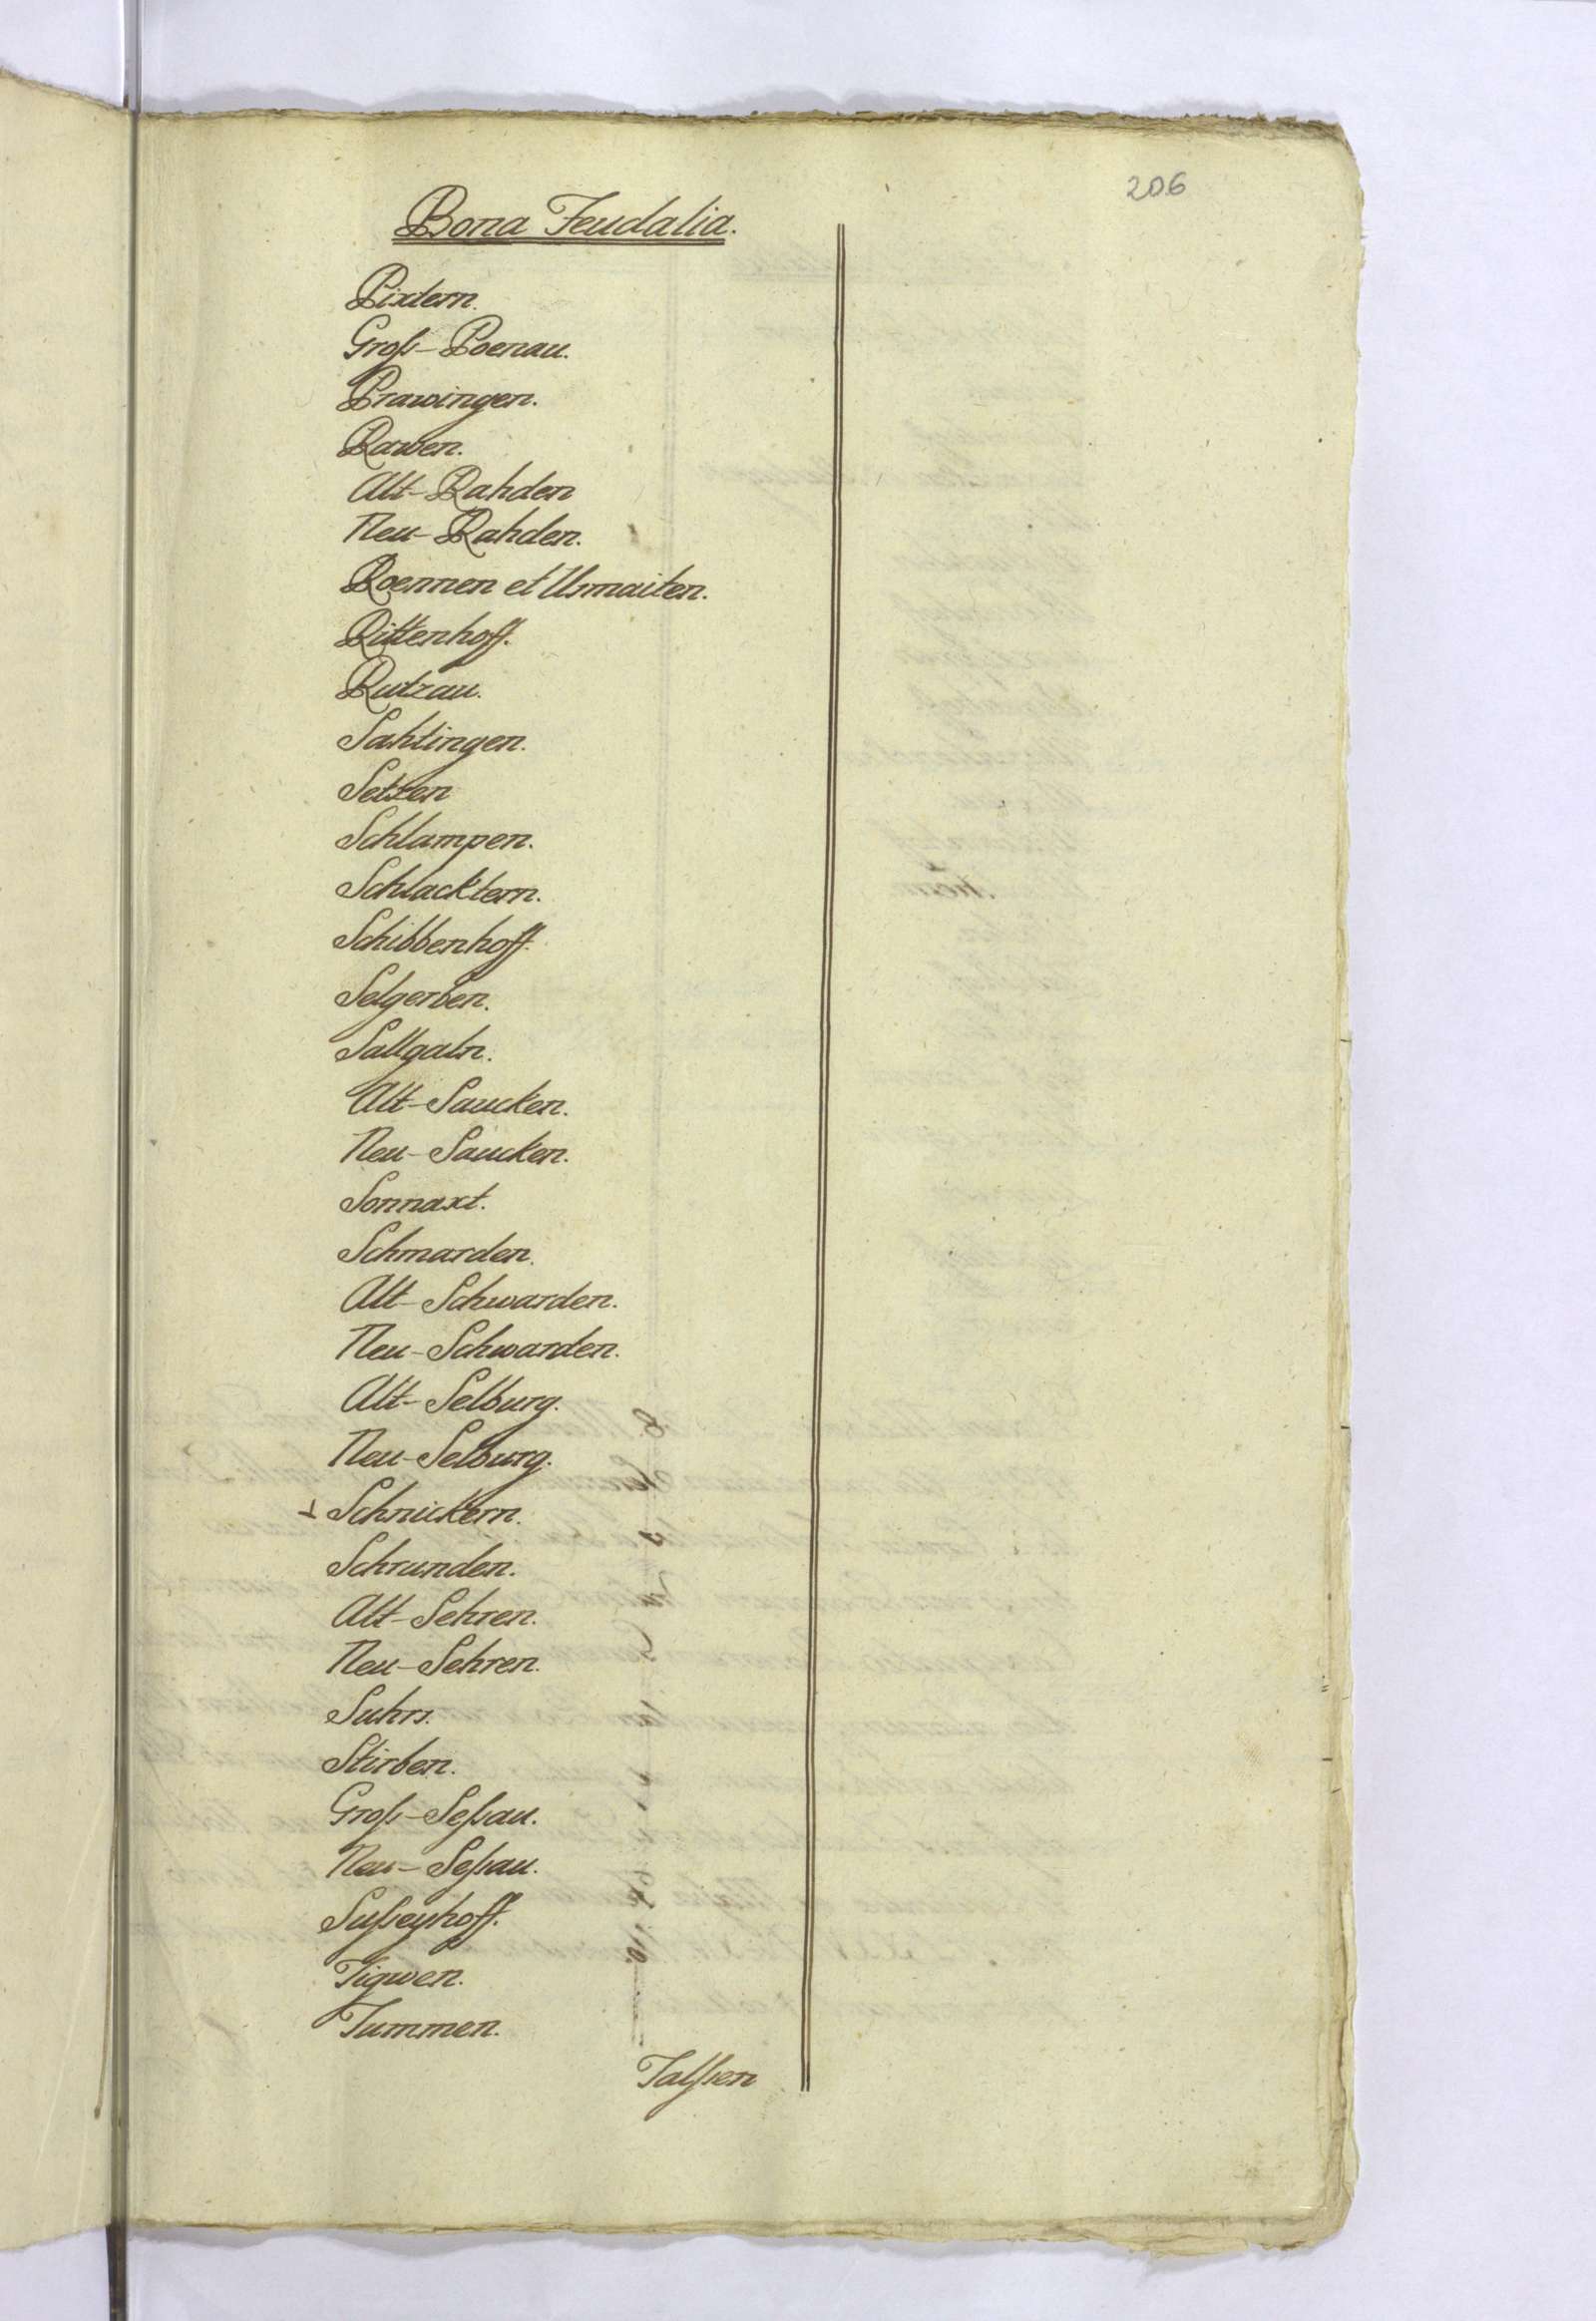 206
Bona Feudalia.
Pixtern.
Groß-Poenau.
Prawingen.
Rawen.
Alt-Rahden
Neu-Rahden.
Roennen et Usmaiten.
Rittenhoff.
Rutzau.
Sahtingen.
Setzen
Schlampen.
Schlacktern.
Schibbenhoff.
Selgerben.
Sallgaln.
Alt-Saucken.
Neu-Saucken.
Sonnaxt.
Schmarden.
Alt-Schwarden.
Neu-Schwarden.
Alt-Selburg.
Neu-Selburg.
Schnickern.
Schrunden.
Alt-Sehren.
Neu-Sehren.
Suhrs.
Stirben.
Groß-Seßau.
Neu-Seßau.
Sußeyhoff.
Tigwen.
Tummen.
Talßen